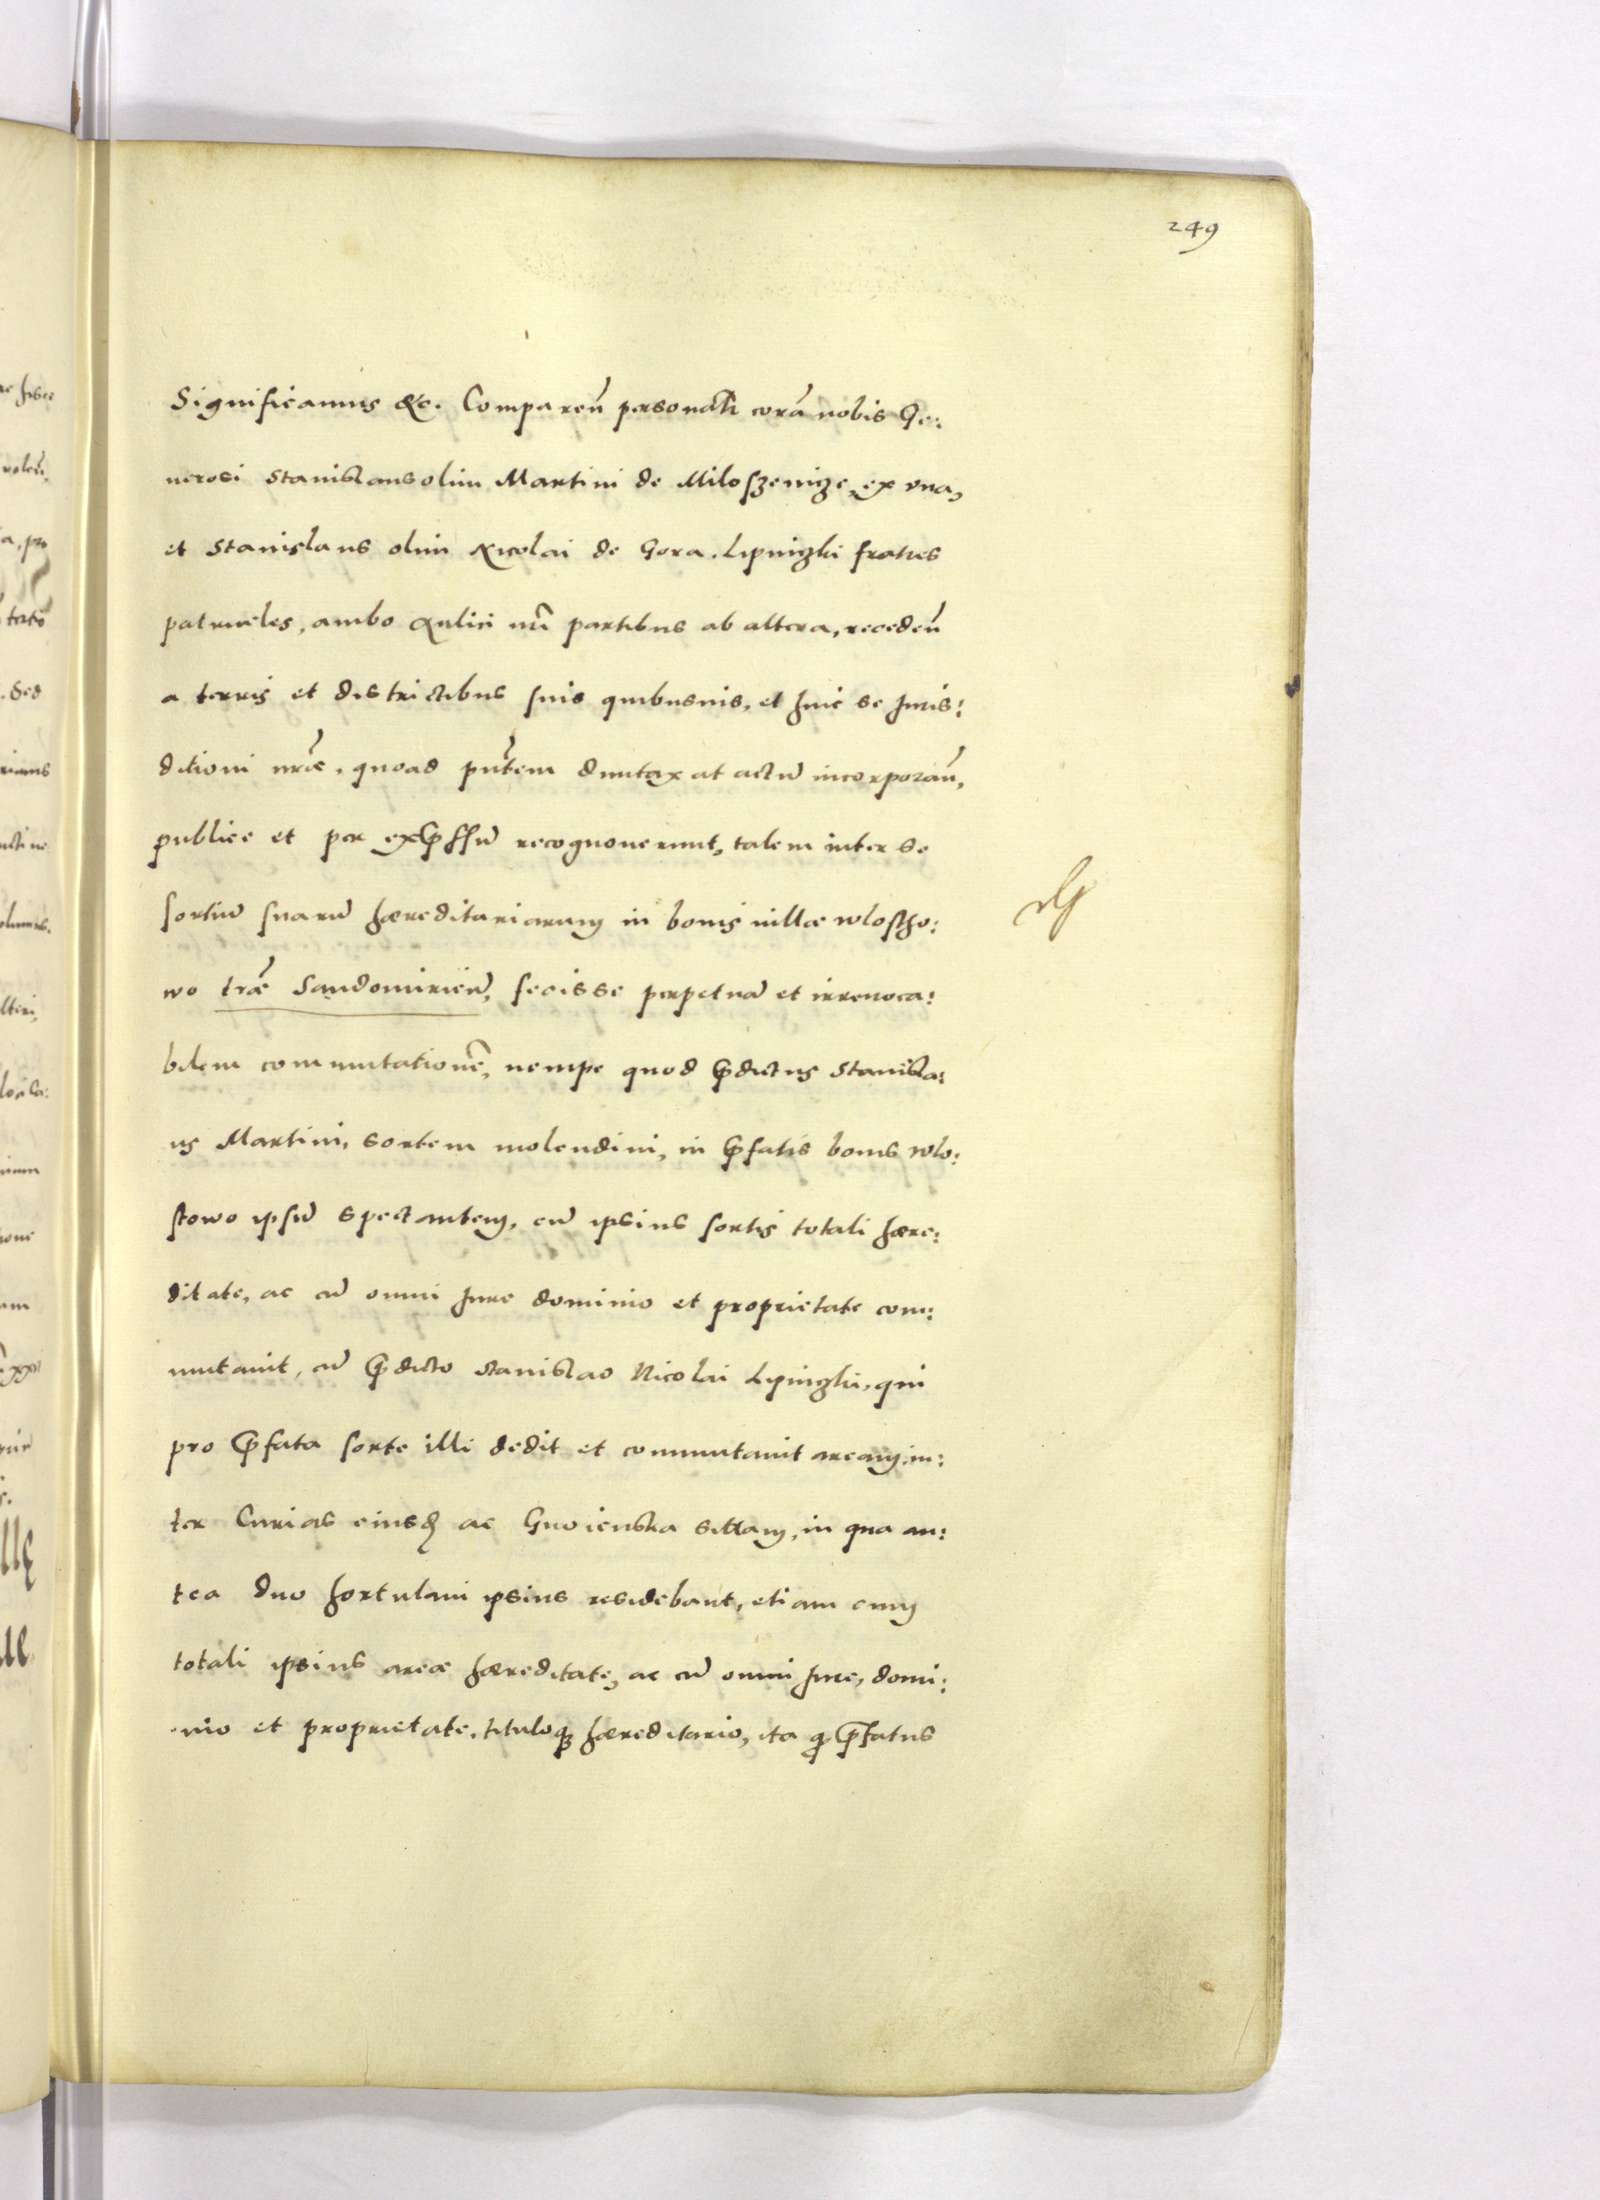 249
Significamus &c. Comparen̄ personalr̄ corā nobis Ge:
nerosi Stanislaus olim Martini de Miloszewize, ex vna,
et Stanislaus olim Nicolai de Gora. Lipnizki fratres
patrueles, ambo Aulici nr̄i partibus ab altera, receden̄
a terris et districtibus suis quibusuis, et huic se Juris:
ditioni nr̄æ, quoad pn̄tem duntaxat actū incorporan̄,
publice et per exp̄ssū recognouerunt, talem inter se
sortiū suarū hæreditariarum in bonis uillæ wlostho:
wo tr̄æ Sandomirien̄, fecisse perpetuā et irreuoca:
bilem commutationē, nempe quod p̄dictus Stanisla:
us Martini, sortem molendini, in p̄fatis bonis wlo:
stowo ipsū spectantem, cū ipsius sortis totali hære:
ditate, ac cū omni Jure dominio et proprietate com:
mutauit, cū p̄dicto Stanislao Nicolai Lipnizki, qui
pro p̄fata sorte illi dedit et commutauit aream, in:
ter Curias eiusd̄ ac Gnoienska sitam, in qua an:
tea duo hortulani ipsius residebant, etiam cum
totali ipsius areæ hæreditate, ac cū omni Jure, domi:
nio et proprietate, tituloq̄ hæreditario, ita q̄ p̄fatus